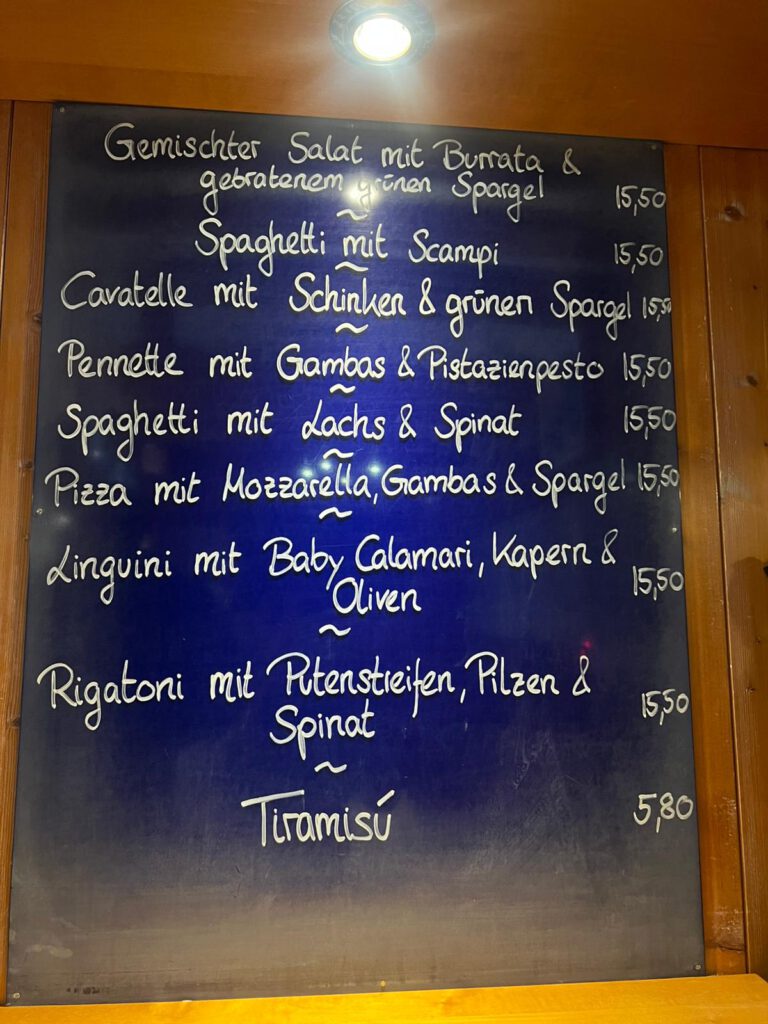 Gemischter Salat mit Burrata &
gebratenem grünen Spargel 15,50
~
Spaghetti mit Scampi 15,50
~
Cavatelle mit Schinken & grünen Spargel 15,50
~
Pennette mit Gambas & Pistazienpesto 15,50
~
Spaghetti mit Lachs & Spinat 15,50
~
Pizza mit Mozzarella, Gambas & Spargel 15,50
~
Linguini mit Baby Calamari, Kapern &
Oliven 15,50
~
Rigatoni mit Putenstreifen, Pilzen &
Spinat 15,50
~
Tiramisú 5,80